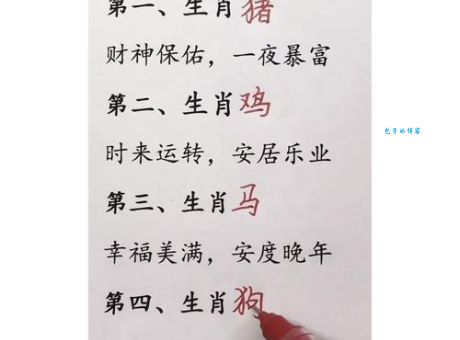 第一、生肖猪
财神保佑，一夜暴富
第二、生肖鸡
时来运转，安居乐业
第三、生肖马
幸福美满，安度晚年
第四、生肖狗
包子的博客